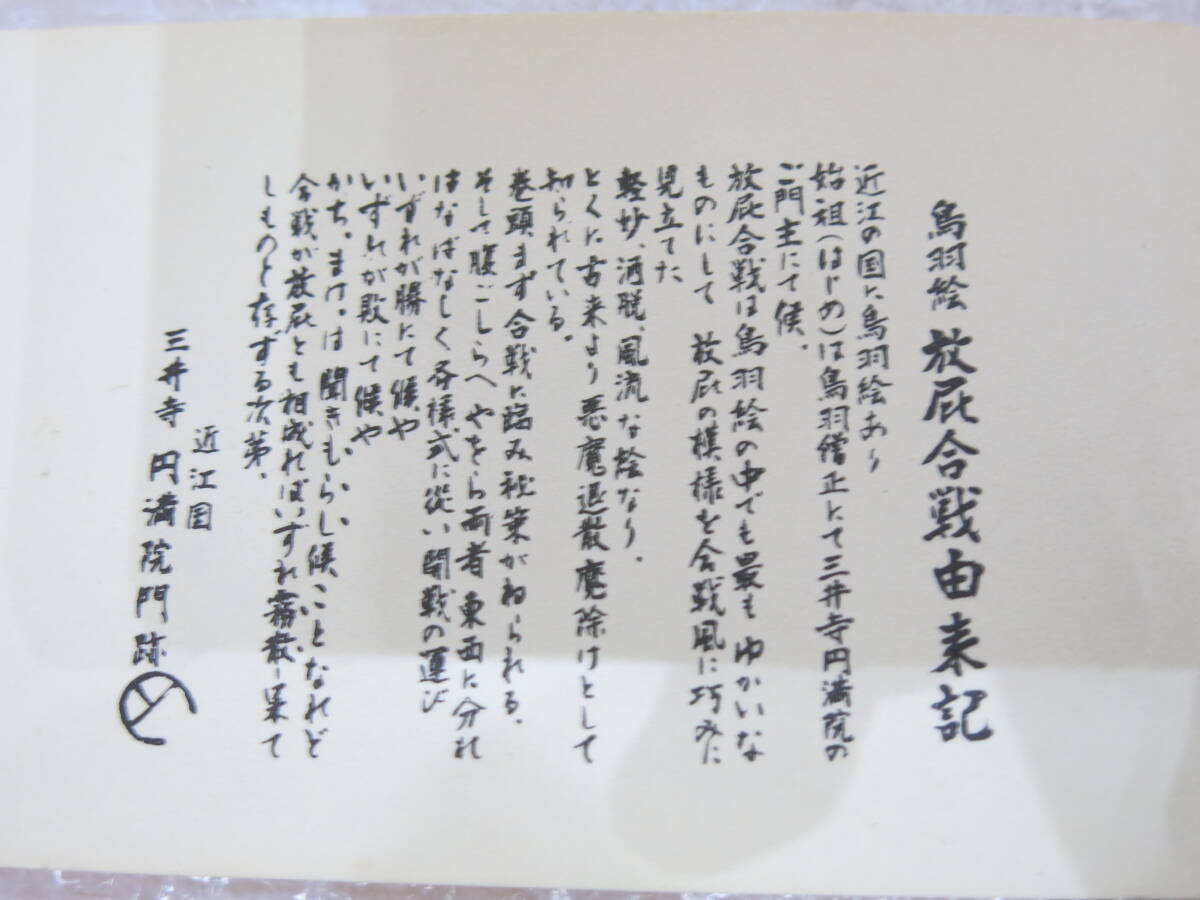 鳥羽絵 放屁合戦由来記
近江の国に鳥羽絵あり
始祖(はじめ)は鳥羽僧正にて三井寺円満院の
ご門主にて候、
放屁合戦は鳥羽絵の中でも最もゆかいな
ものにして 放屁の模様を合戦風に巧みに
見立てた
軽妙、洒脱、風流な絵なり、
とくに古来より悪魔退散魔除けとして
知られている。
巻頭まず合戦に臨み秘策がねられる、
そして腹ごしらへやをら両者東西に分れ
はなばなしく各様式に従い開戦の運び
いずれが勝にて候や
いずれが敗にて候や
かち、まけ、は聞きもらし候、ことなれど
合戦が放屁とも相成ればいずれ霧散し果て
しものと存ずる次第、
近江国
三井寺 円満院門跡